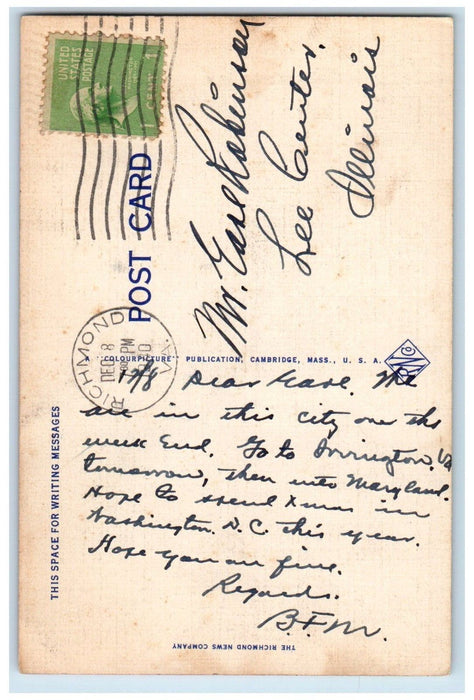 UNITED STATES POSTAGE
1 CENT
POST CARD
Mr. Earl Robinson
Lee Center,
Illinois
RICHMOND
DEC 8
PM
VA
A "COLOURPICTURE" PUBLICATION, CAMBRIDGE, MASS., U. S. A.
THIS SPACE FOR WRITING MESSAGES
12/8 Dear Earl. We
are in this city over the
week End. Go to Irvington, Va
tomorrow, then into Maryland.
Hope to spend Xmas in
Washington. D.C. this year.
Hope you are fine.
Regards.
B.F.M.
THE RICHMOND NEWS COMPANY